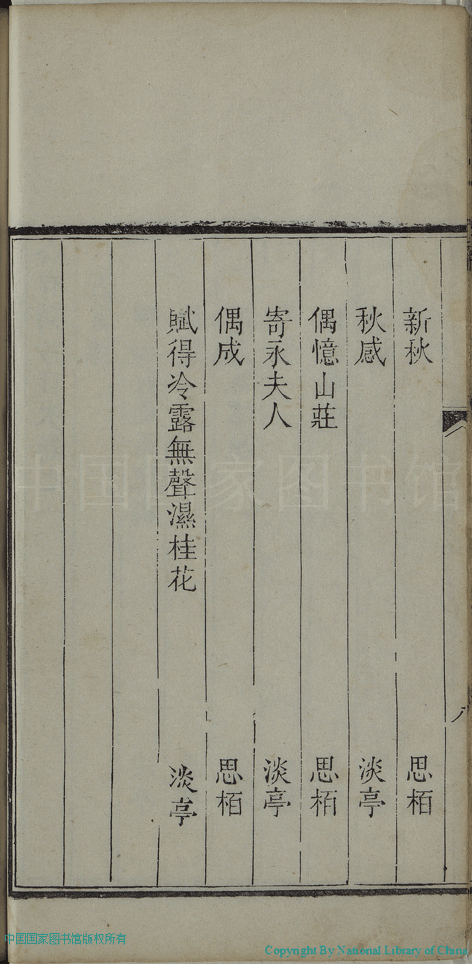 新秋 思栢
秋感 淡亭
偶憶山莊 思栢
寄永夫人 淡亭
偶成 思栢
賦得冷露無聲濕桂花 淡亭
八
中国国家图书馆
中国国家图书馆版权所有
Copyright By National Library of China